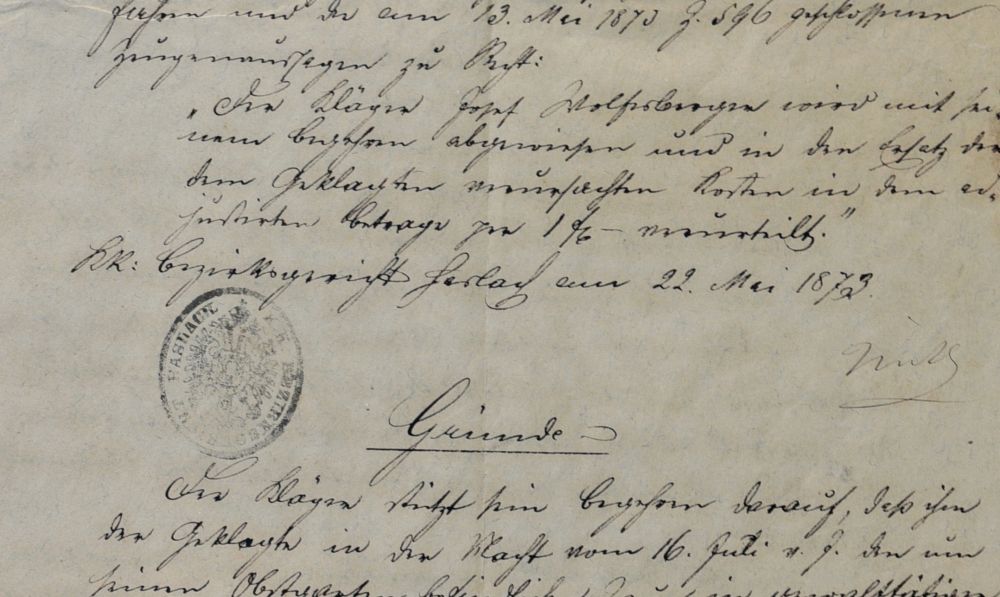 fahren und die am 13. Mai 1873 Z. 596 geschlossenen
Zeugenaussagen zu Recht:
„Der Kläger Josef Wolfesberger wird mit sei-
nem Begehren abgewiesen und in den Ersatz der
dem Geklagten verursachten Kosten in dem ad-
justirten Betrage per 1 f – verurteilt."
KK: Bezirksgericht Haslach am 22. Mai 1873.
K. K. BEZIRKSGERICHT HASLACH
Gründe
Der Kläger stützt sein Begehren darauf, daß ihm
der Geklagte in der Nacht vom 16. Juli v. J. den um
seinen Obstgarten